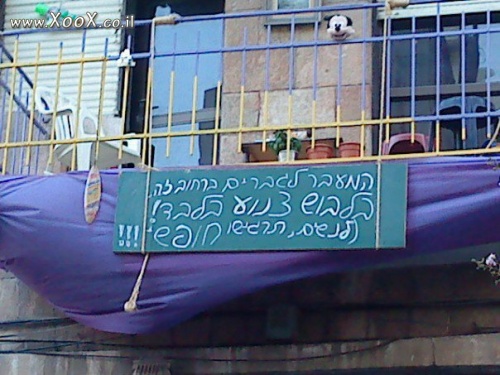 www.XooX.co.il
המעבר לגברים ברחוב זה,
בלבוש צנוע בלבד!
ולנשים, תרגישו חופש!!!